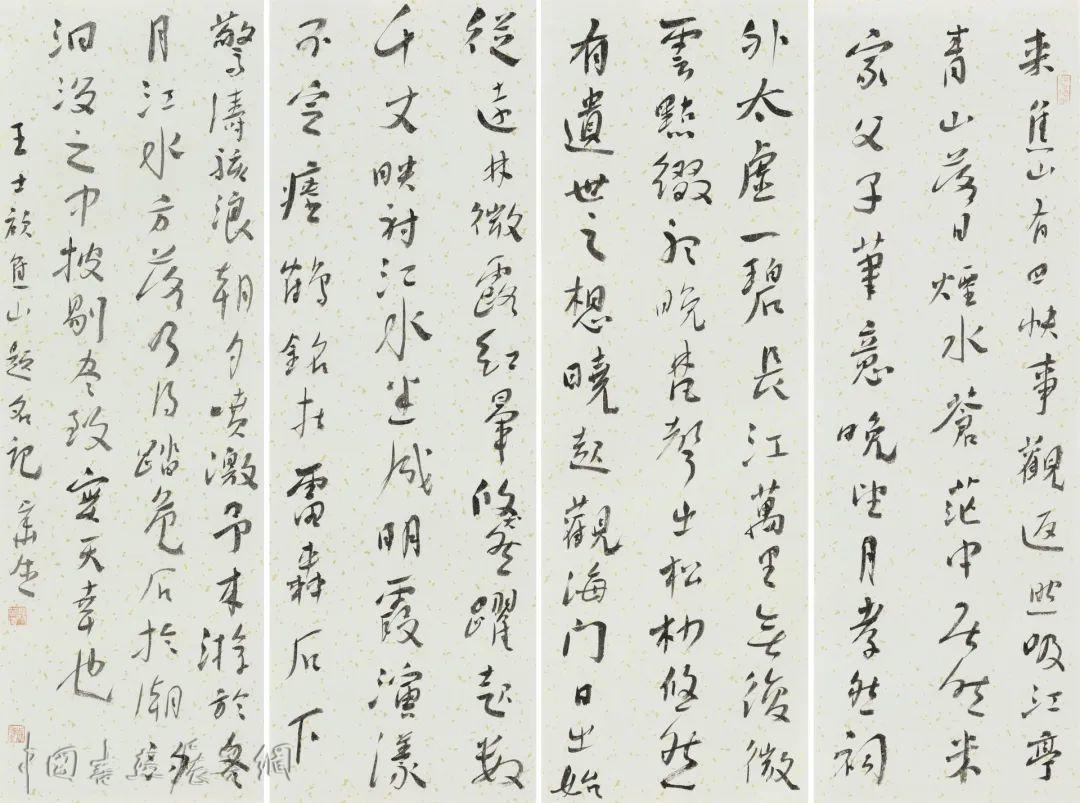 来焦山有四快事觀返照吸江亭
青山落日煙水蒼茫中居然米
家父子筆意晚望月孝然祠
外太虛一碧長江萬里無復微
雲點綴聽晚梵聲出松杪悠然
有遺世之想曉起觀海門日出始
從遠林微露紅暈倏然躍起數
千丈映射江水悉成明霞演漾
不定瘞鶴銘在雷轟石下
驚濤駭浪朝夕噴激予来游於冬
月江水方落乃得踏危石於潮汐
汩沒之中披剔盡致實天幸也
王士禛焦山題名記